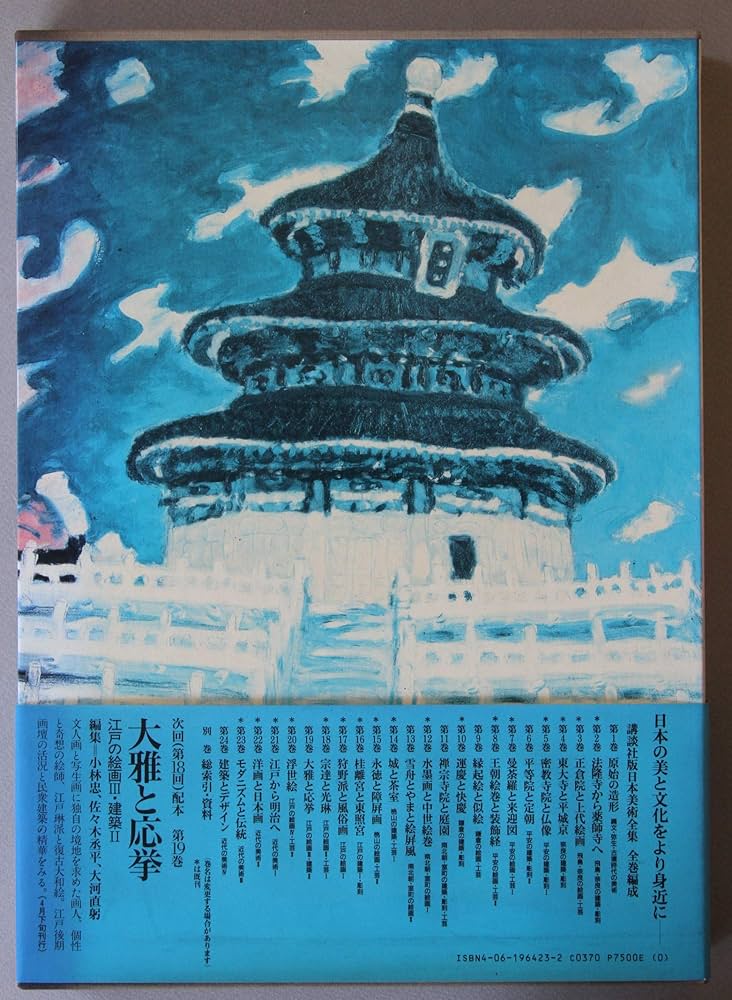 日本の美と文化をより身近に――
講談社版日本美術全集 全巻編成
第1巻 原始の造形 縄文・弥生・古墳時代の美術
＊第2巻 法隆寺から薬師寺へ 飛鳥・奈良の建築・彫刻
＊第3巻 正倉院と上代絵画 飛鳥・奈良の絵画・工芸
＊第4巻 東大寺と平城京 奈良の建築・彫刻
＊第5巻 密教寺院と仏像 平安の建築・彫刻Ⅰ
第6巻 平等院と定朝 平安の建築・彫刻Ⅱ
＊第7巻 曼荼羅と来迎図 平安の絵画・工芸Ⅰ
＊第8巻 王朝絵巻と装飾経 平安の絵画・工芸Ⅱ
第9巻 縁起絵と似絵 鎌倉の絵画・工芸
＊第10巻 運慶と快慶 鎌倉の建築・彫刻
第11巻 禅宗寺院と庭園 南北朝・室町の建築・彫刻・工芸
＊第12巻 水墨画と中世絵巻 南北朝・室町の絵画Ⅰ
第13巻 雪舟とやまと絵屏風 南北朝・室町の絵画Ⅱ
＊第14巻 城と茶室 桃山の建築・工芸Ⅰ
＊第15巻 永徳と障屏画 桃山の絵画・工芸Ⅱ
＊第16巻 桂離宮と東照宮 江戸の建築Ⅰ・彫刻
＊第17巻 狩野派と風俗画 江戸の絵画Ⅰ
＊第18巻 宗達と光琳 江戸の絵画Ⅱ・工芸Ⅰ
第19巻 大雅と応挙 江戸の絵画Ⅲ・建築Ⅱ
＊第20巻 浮世絵 江戸の絵画Ⅳ・工芸Ⅱ
＊第21巻 江戸から明治へ 近代の美術Ⅰ
＊第22巻 洋画と日本画 近代の美術Ⅱ
＊第23巻 モダニズムと伝統 近代の美術Ⅲ
第24巻 建築とデザイン 近代の美術Ⅳ
別巻 総索引・資料
（巻名は変更する場合があります）
＊は既刊
次回（第18回）配本 第19巻
大雅と応挙
江戸の絵画Ⅲ・建築Ⅱ
編集＝小林忠、佐々木丞平、大河直躬
文人画と写生画に独自の境地を求めた画人、個性
と奇想の絵師、江戸琳派と復古大和絵。江戸後期
画壇の活況と民衆建築の精華をみる。（4月下旬刊行）
ISBN4-06-196423-2 C0370 P7500E (0)